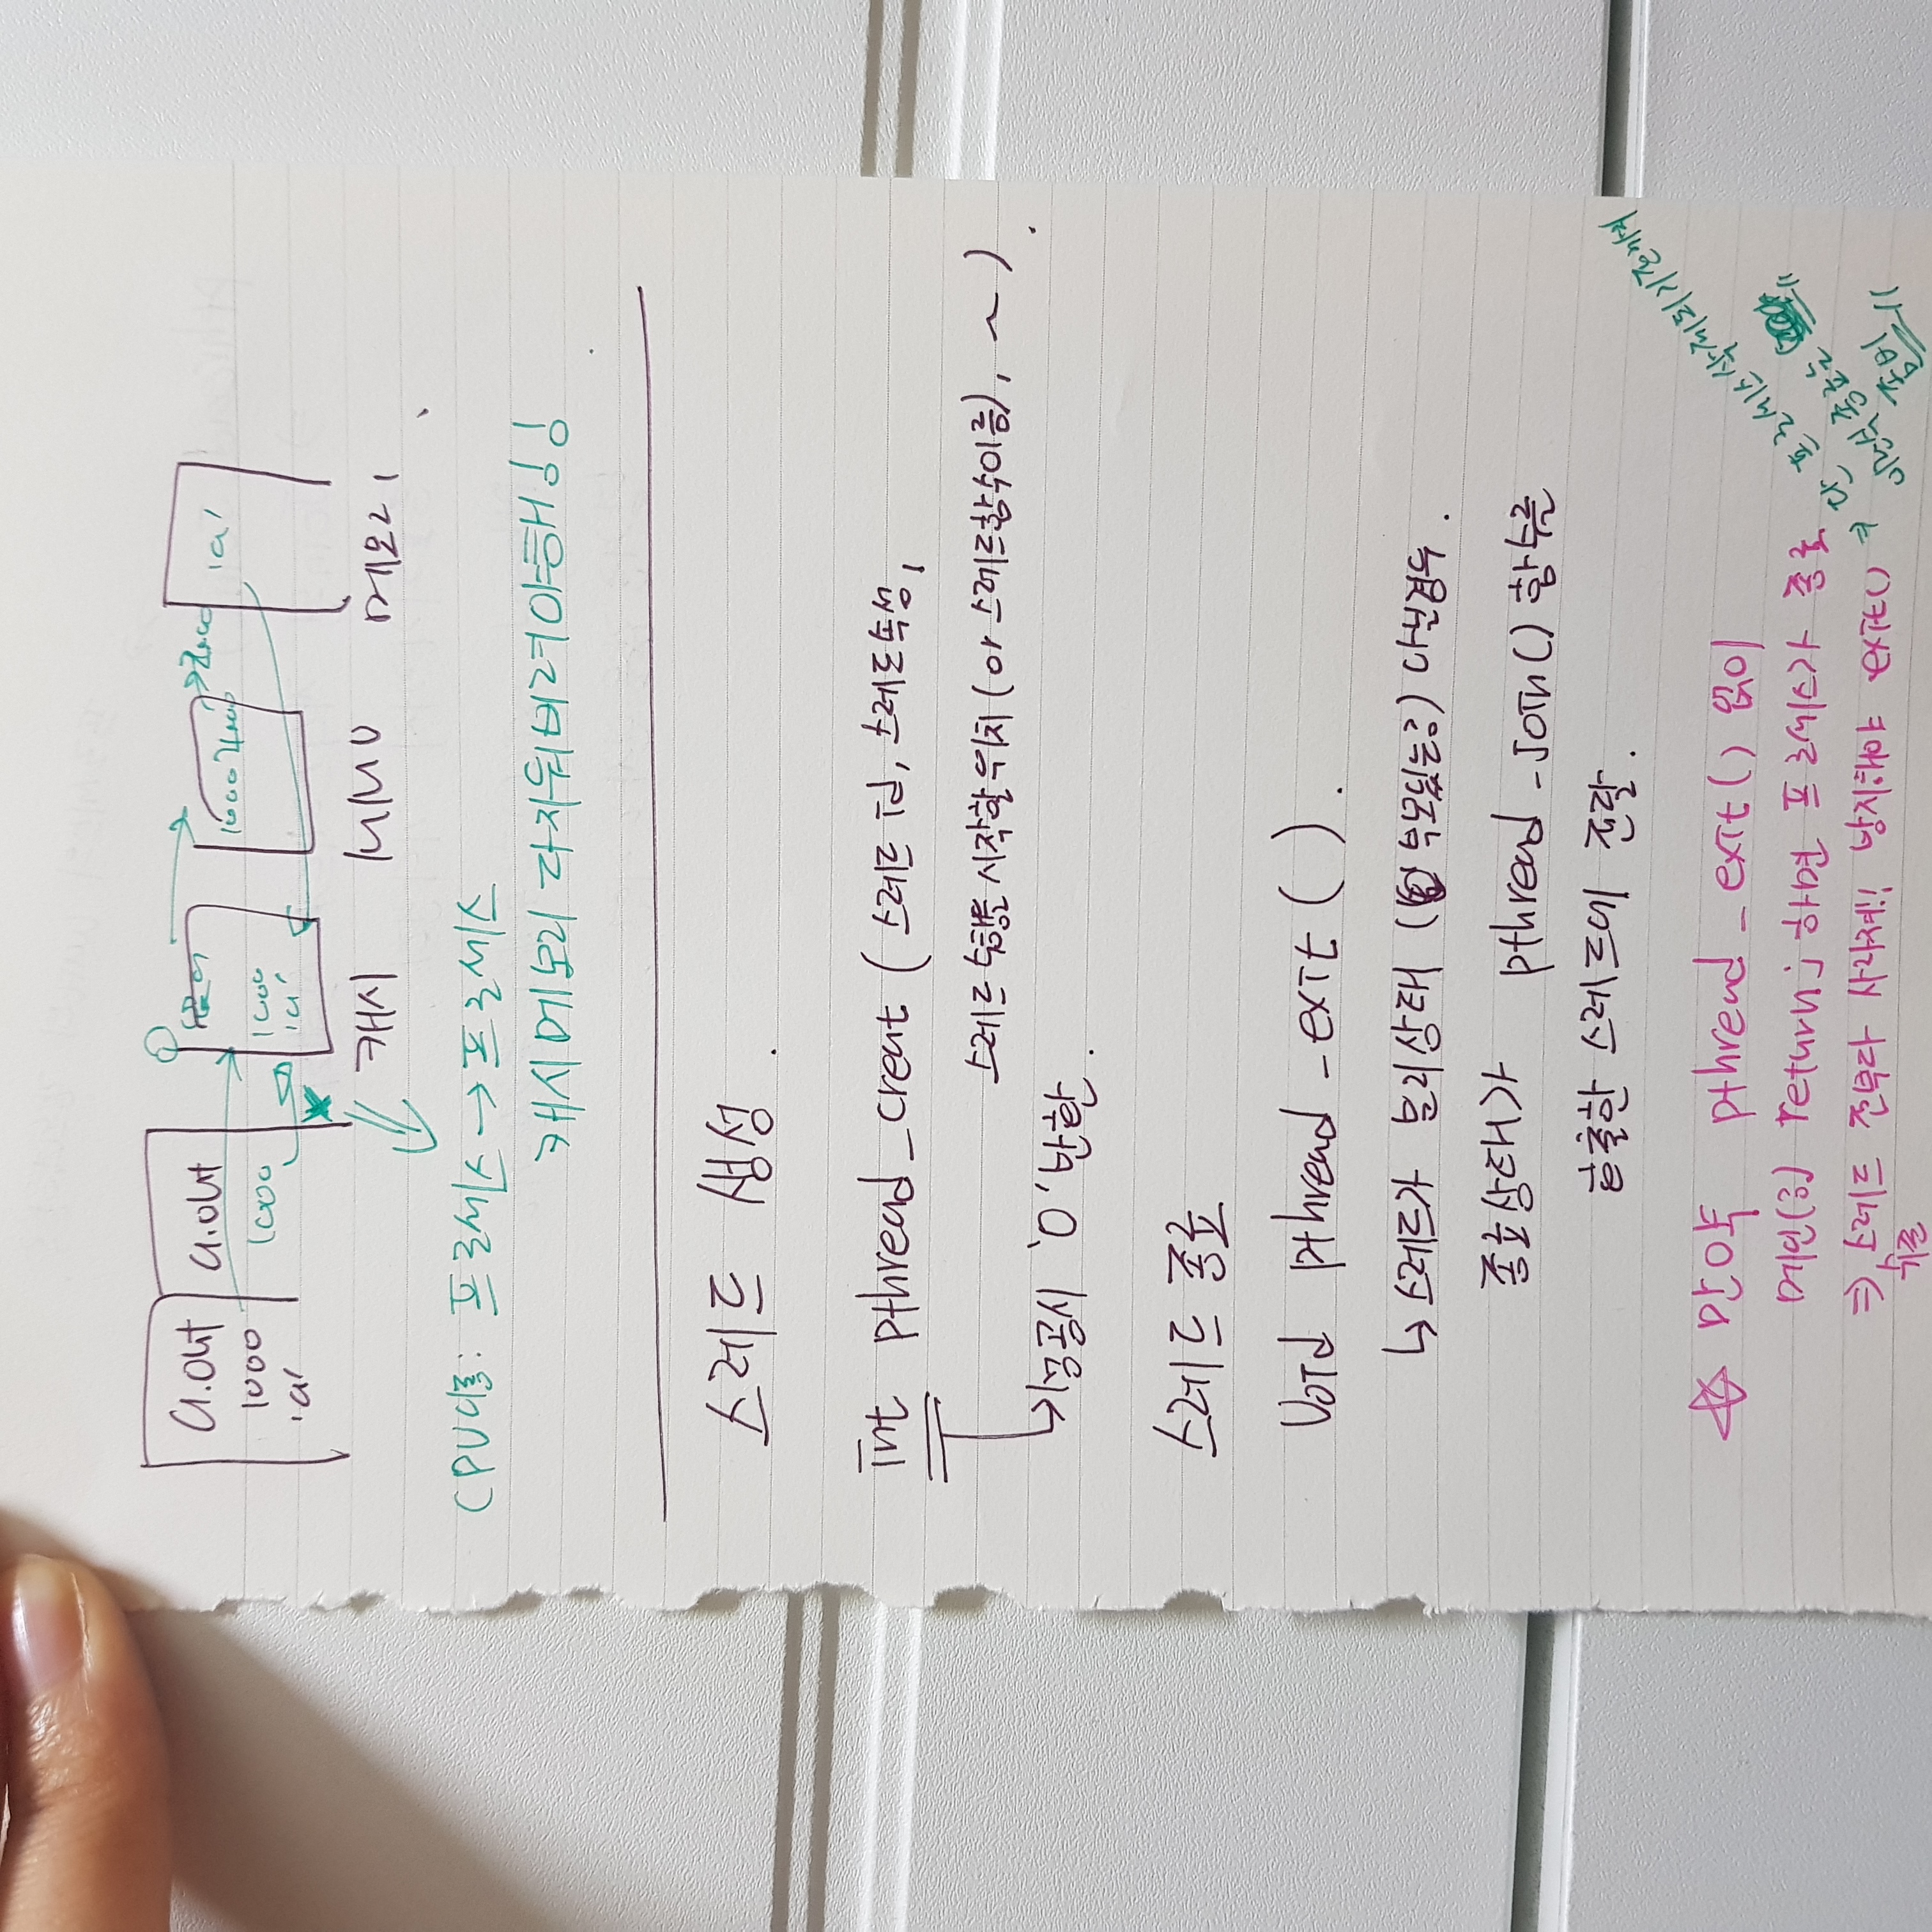 a.out a.out
1000 1000 1000
'a' 'a' 'a'
캐시 MMU 메모리
CPU 다름: 프로세스→프로세스
캐시메모리 다지워버려야해
스레드 생성.
int pthread_creat (스레드 id, 스레드속성,
스레드 수행을 시작할위치 (or 스레드함수이름), ~).
→성공시 '0' 반환.
스레드 종료
Void pthread_exit ( ).
↳ 스레드가 분리상태 ( ) 아닌경우.
종료상태가 pthread_join() 함수를
호출한 스레드에 전달.
☆ 만약 pthread_exit() 없이
메인( ) return; 하면 프로세스가 종료
⇒ 스레드 전부다 사라져!! 방지해야 exit()
단 프로세스 삭제되기전까지
이런식 종료는
좀비